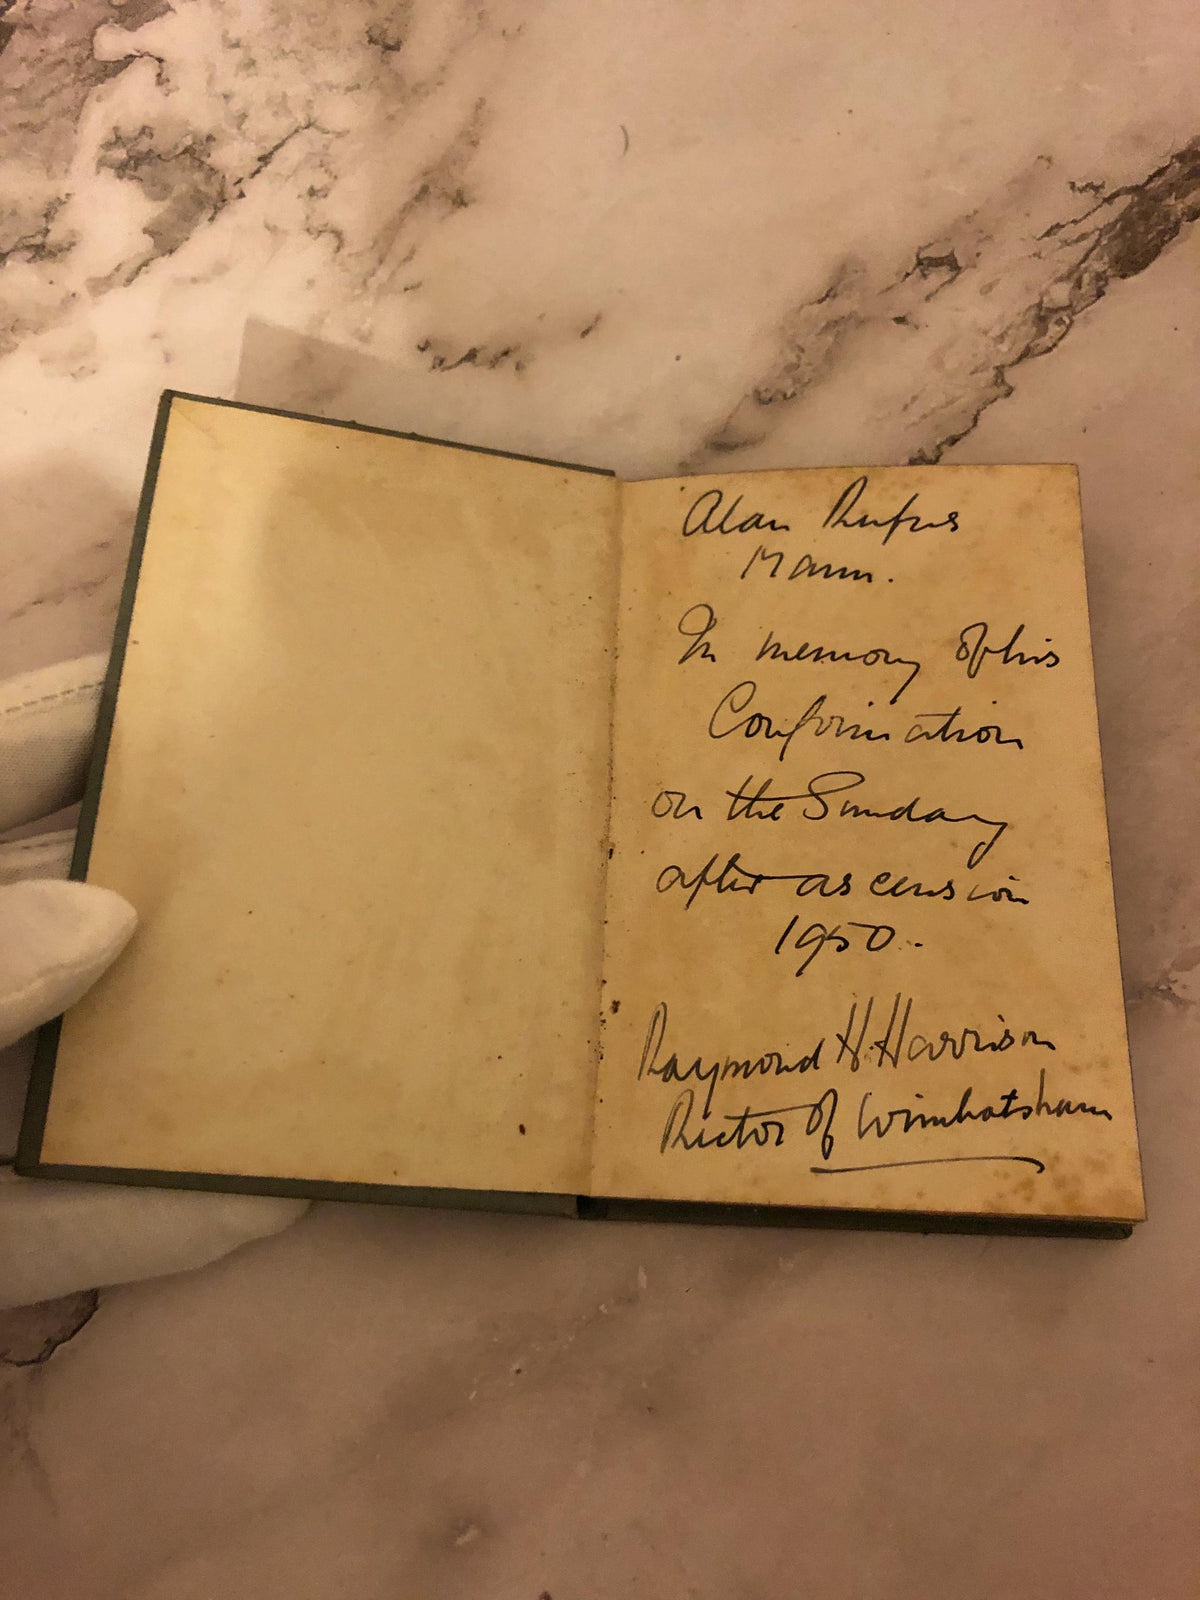 Alan Rufus
Mann.
In memory of his
Confirmation
on the Sunday
after ascension
1950.
Raymond H. Harrison
Rector of Wimbotsham